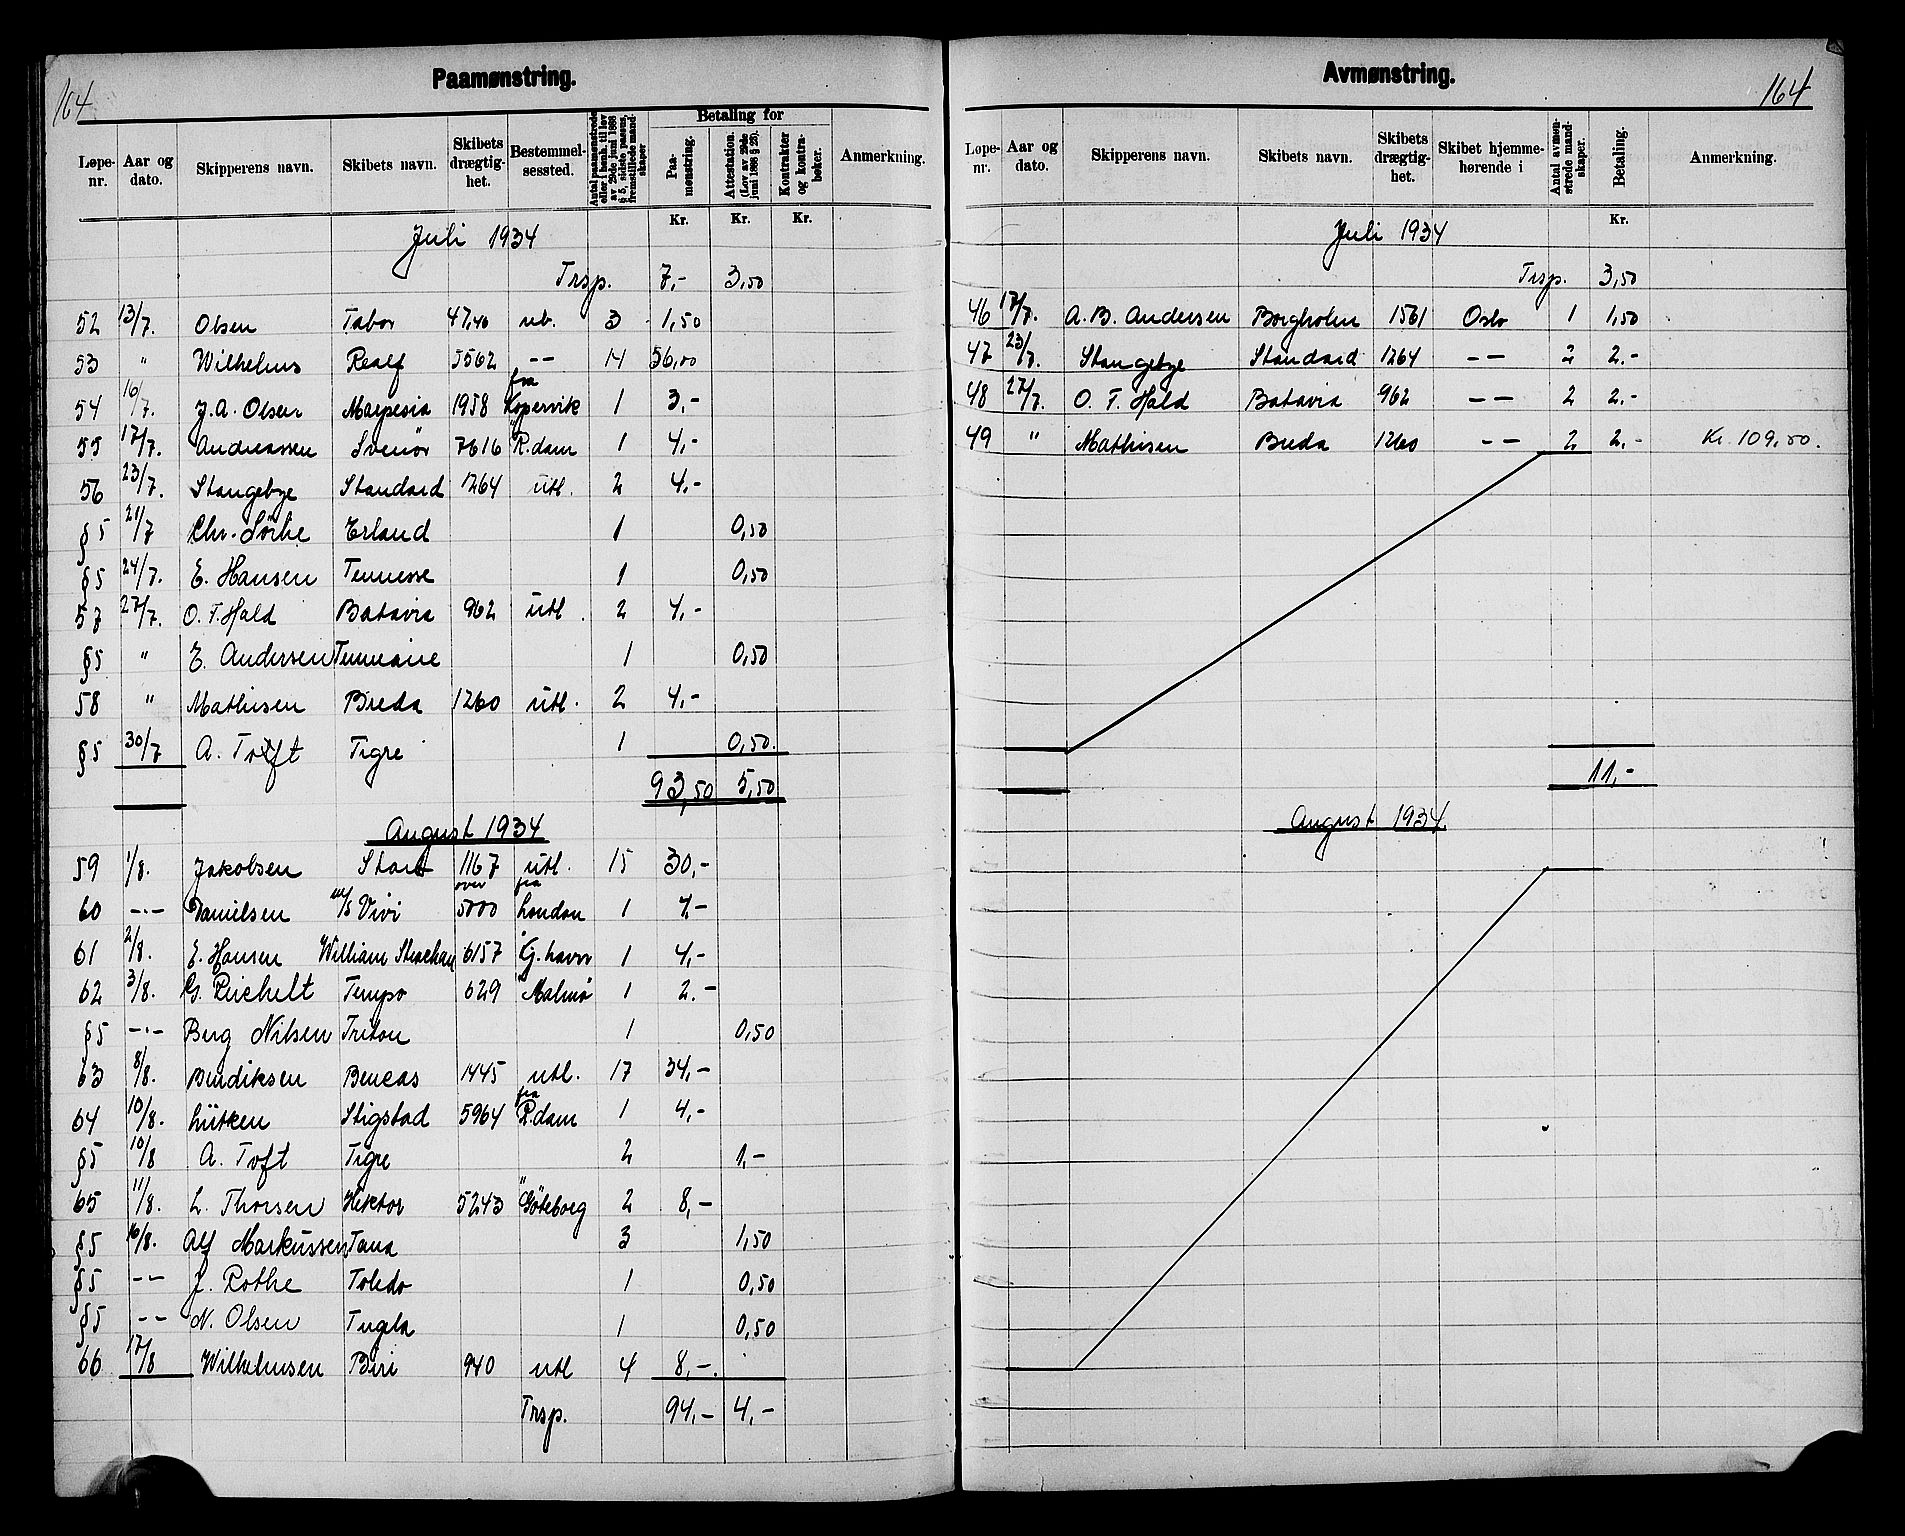 164
Paamønstring.
Løpe-nr. Aar og dato. Skipperens navn. Skibets navn. Skibets drægtig-het. Bestemmel-sessted. Antal paamønstrede eller itsenh. til lov av 29de juni 1888 § 5, sidste passus, fremstillede mand-skaper Betaling for Paa-mønstring. Attestation. (Lov av 29de juni 1888 § 28). Kontrakter og kontra-bøker. Anmerkning.
Kr. Kr. Kr.
Juli 1934
Trsp. 7,- 3,50
52 13/7. Olsen Tabor 47,46 ub. 3 1,50
53 " Wilhelms Realf 5562 -- 14 56,00
54 16/7. J. A. Olsen Marpesia 1958 fra Kopervik 1 3,-
55 17/7. Andreassen Svenör 7616 " R.dam 1 4,-
56 23/7. Stangebye Standard 1264 utl. 2 4,-
§5 21/7 Chr. Sörlie Erland 1 0,50
§5 24/7. E. Hansen Tennesse 1 0,50
57 27/7. O. T. Hald Batavia 962 utl. 2 4,-
§5 " E. Andersen 1 0,50
58 " Mathisen Breda 1260 utl. 2 4,-
§5 30/7 A. Toft Tigre 1 0,50.
93,50 5,50
August 1934
59 1/8. Jakobsen Starb 1167 utl. 15 30,-
60 -"- Danielsen m/s Vivi over 5000 fra London 1 4,-
61 2/8. E. Hansen William Strachan 6157 " G. havn 1 4,-
62 3/8. G. Reichelt Tempo 629 " Malmö 1 2.-
§5 -"- Berg Nilsen Triton 1 0,50
63 8/8. Bendiksen Beneas 1445 utl. 17 34,-
64 10/8. Lütken Stigstad 5964 fra R.dam 1 4,-
§5 10/8 A. Toft Tigre 2 1,-
65 11/8. L. Thorsen Hektor 5243 " Göteborg 2 8,-
§5 16/8. Alf Markussen Tana 3 1,50
§5 -- J. Rothe Toledo 1 0,50
§5 -- N. Olsen Tugela 1 0,50
66 17/8 Wilhelmsen Biri 940 utl 4 8,-.
Trsp. 94,- 4,-
Avmønstring.
164
Løpe-nr. Aar og dato. Skipperens navn. Skibets navn. Skibets drægtig-het. Skibet hjemme-hørende i Antal avmøn-strede mand-skaper. Betaling. Anmerkning.
Kr.
Juli 1934
Trsp. 3,50
46 17/7. A. B. Andersen Borgholm 1561 Oslo 1 1,50
47 23/7. Stangebye Standard 1264 -- 2 2.-
48 27/7. O. T. Hald Batavia 962 -- 2 2.-
49 " Mathisen Breda 1260 -- 2 2,- Kr. 109,50.
11,-
August 1934.